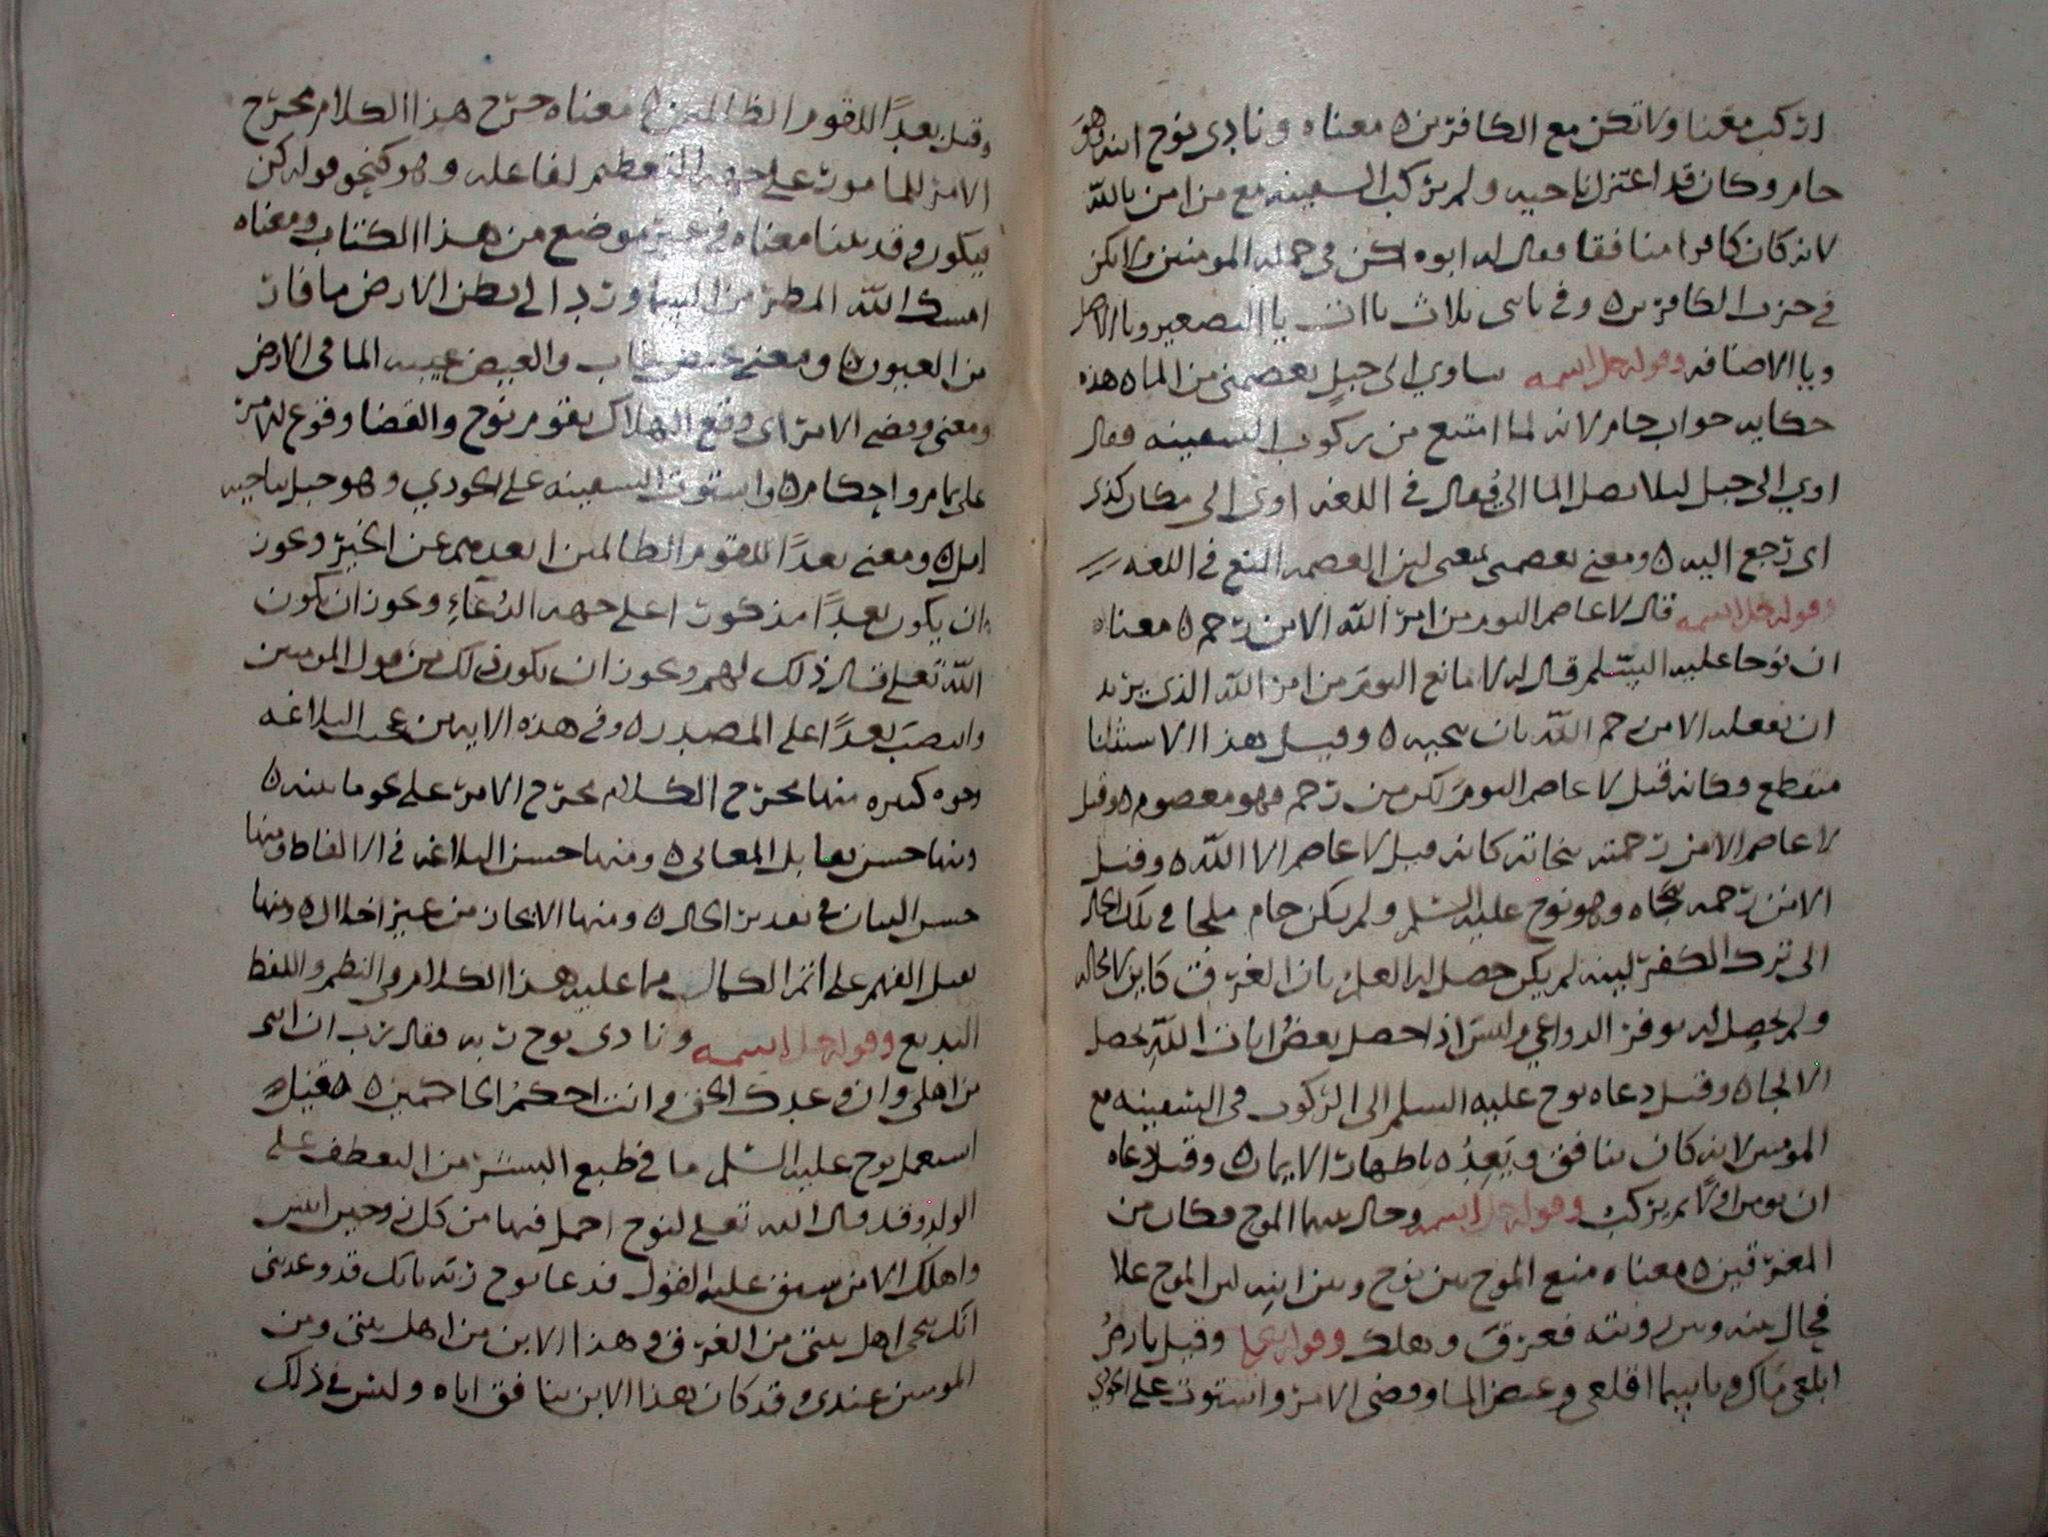 اركب معنا ولا تكن مع الكافرين ٥ معناه ونادى نوح ابنه وهو
حام وكان قد اعتزل ناحيه ولم يركب السفينه مع من امن بالله
لانه كان كافرا منافقا فقال له ابوه اكن في جمله المومنين ولا تكن
في حزب الكافرين ٥ وفي يا بنى ثلاث ياات يا التصغير ويا الاصل
ويا الاضافه وقوله جل اسمه ساوي الى جبل يعصمنى من الما ٥ هذه
حكايه جواب حام لانه لما امتنع من ركوب السفينه فقال
اوي الى جبل ليلا يصل الما الي يقال في اللغه اوى الى مكان كذى
اى رجع اليه ٥ ومعنى يعصمنى يمنعنى لين العصمه المنع في اللغه
وقوله جل اسمه قال لا عاصم اليوم من امر الله الا من رحم ٥ معناه
ان نوحا عليه السلم قال له لا مانع اليوم من امر الله الذى يريد
ان يفعله الا من رحم الله بان ينجيه ٥ وقيل هذا الاستثنا
منقطع وكانه قيل لا عاصم اليوم لكن من رحم فهو معصوم ٥ وقيل
لا عاصم الا من رحمته نجاته كانه قيل لا عاصم الا الله ٥ وقيل
الا من رحمه نجاه وهو نوح عليه السلم ولم يكن حام ملجا في تلك الحال
الى ترك الكفر لينه لم يكن حصل له العلم بان الغرق كاين لا محاله
ولم يحصل له توفر الدواعي وليس اذا حصل بعض ايات الله يحصل
الالجا ٥ وقيل دعاه نوح عليه السلم الى الركوب في السفينه مع
المومنين لانه كان ينافق ويعده باظهار الايمان ٥ وقيل دعاه
ان يومن اولا ثم يركب وقوله جل اسمه وحال بينهما الموج فكان من
المغرقين ٥ معناه منع الموج بين نوح وبين ابنه لين الموج علا
فحال بينه وبين رويته فغرق وهلك وقوله تعالى وقيل يا ارض
ابلعي ماك ويا سما اقلعي وغيض الما وقضى الامر واستوت على الجودي
وقيل بعدا للقوم الظالمين ٥ معناه خرج هذا الكلام مخرج
الامر للمامور على جهه التعظيم لفاعله وهو كنحو قوله كن
فيكون وقد بينا معناه في غير موضع من هذا الكتاب ومعناه
امسك الله المطر من السما ورد الى بطن الارض ما فار
من العيون ٥ ومعنى غيض غاب والغيض غيبه الما في الارض
ومعنى وقضي الامر اى وقع الهلاك بقوم نوح والقضا وقوع الامر
على تمام واحكام ٥ واستوت السفينه على الجودي وهو جبل بناحيه
امل ٥ ومعنى بعدا للقوم الظالمين ابعدهم عن الخير ويجوز
ان يكون بعدا مذكورا على جهه الدعاء ويجوز ان يكون
الله تعلى قال ذلك لهم ويجوز ان يكون ذلك من قول المومنين
وانتصب بعدا على المصدر ٥ وفي هذه الايه من عجيب البلاغه
وجوه كثيره منها مخرج الكلام مخرج الامر على نحو ما بينه ٥
ومنها حسن تقابل المعانى ٥ ومنها حسن البلاغه في الالفاظ ومنها
حسن البيان في تقدير الحال ٥ ومنها الايجاز من غير اخلال ٥ ومنها
تقبل الفهم على اتم الكمال مما عليه هذا الكلام في النظم واللفظ
البديع وقوله جل اسمه ونادى نوح ربه فقال رب ان ابنى
من اهلي وان وعدك الحق وانت احكم الحاكمين ٥ قيل
استعمل نوح عليه السلم ما في طبع البشر من التعطف على
الولد وقد قال الله تعلى لنوح احمل فيها من كل زوجين اثنين
واهلك الا من سبق عليه القول فدعا نوح ربه بانك قد وعدتنى
انك تنجى اهل بيتى من الغرق وهذا الابن من اهل بيتى ومن
المومنين عندى وقد كان هذا الابن ينافق اباه وليس في ذلك